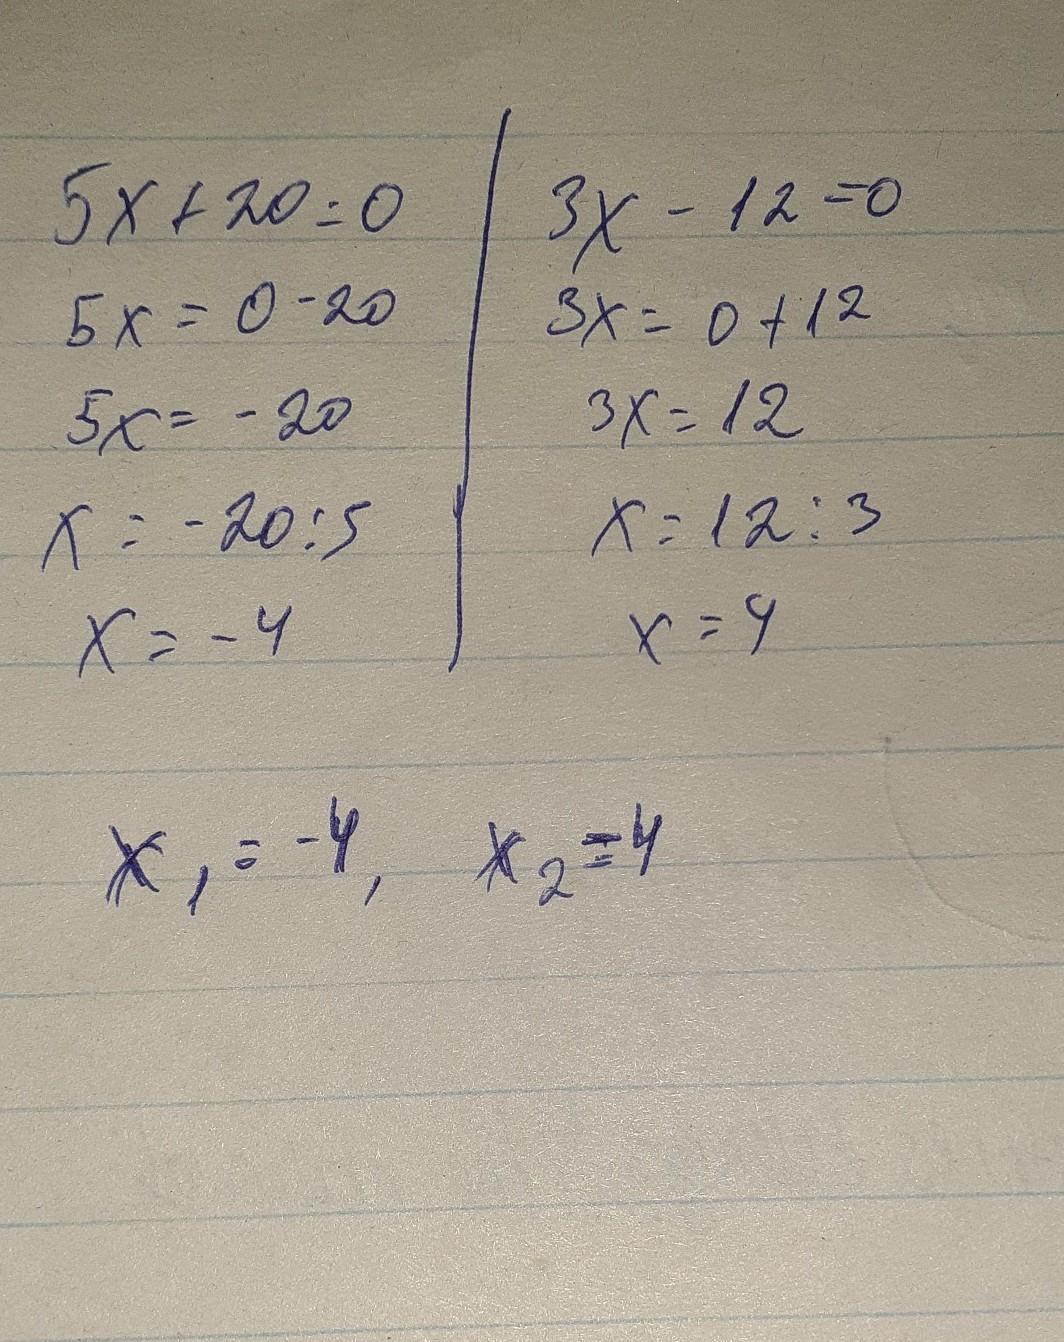 5x+20=0
5x=0-20
5x=-20
x=-20:5
x=-4
3x-12=0
3x=0+12
3x=12
x=12:3
x=4
x₁=-4, x₂=4